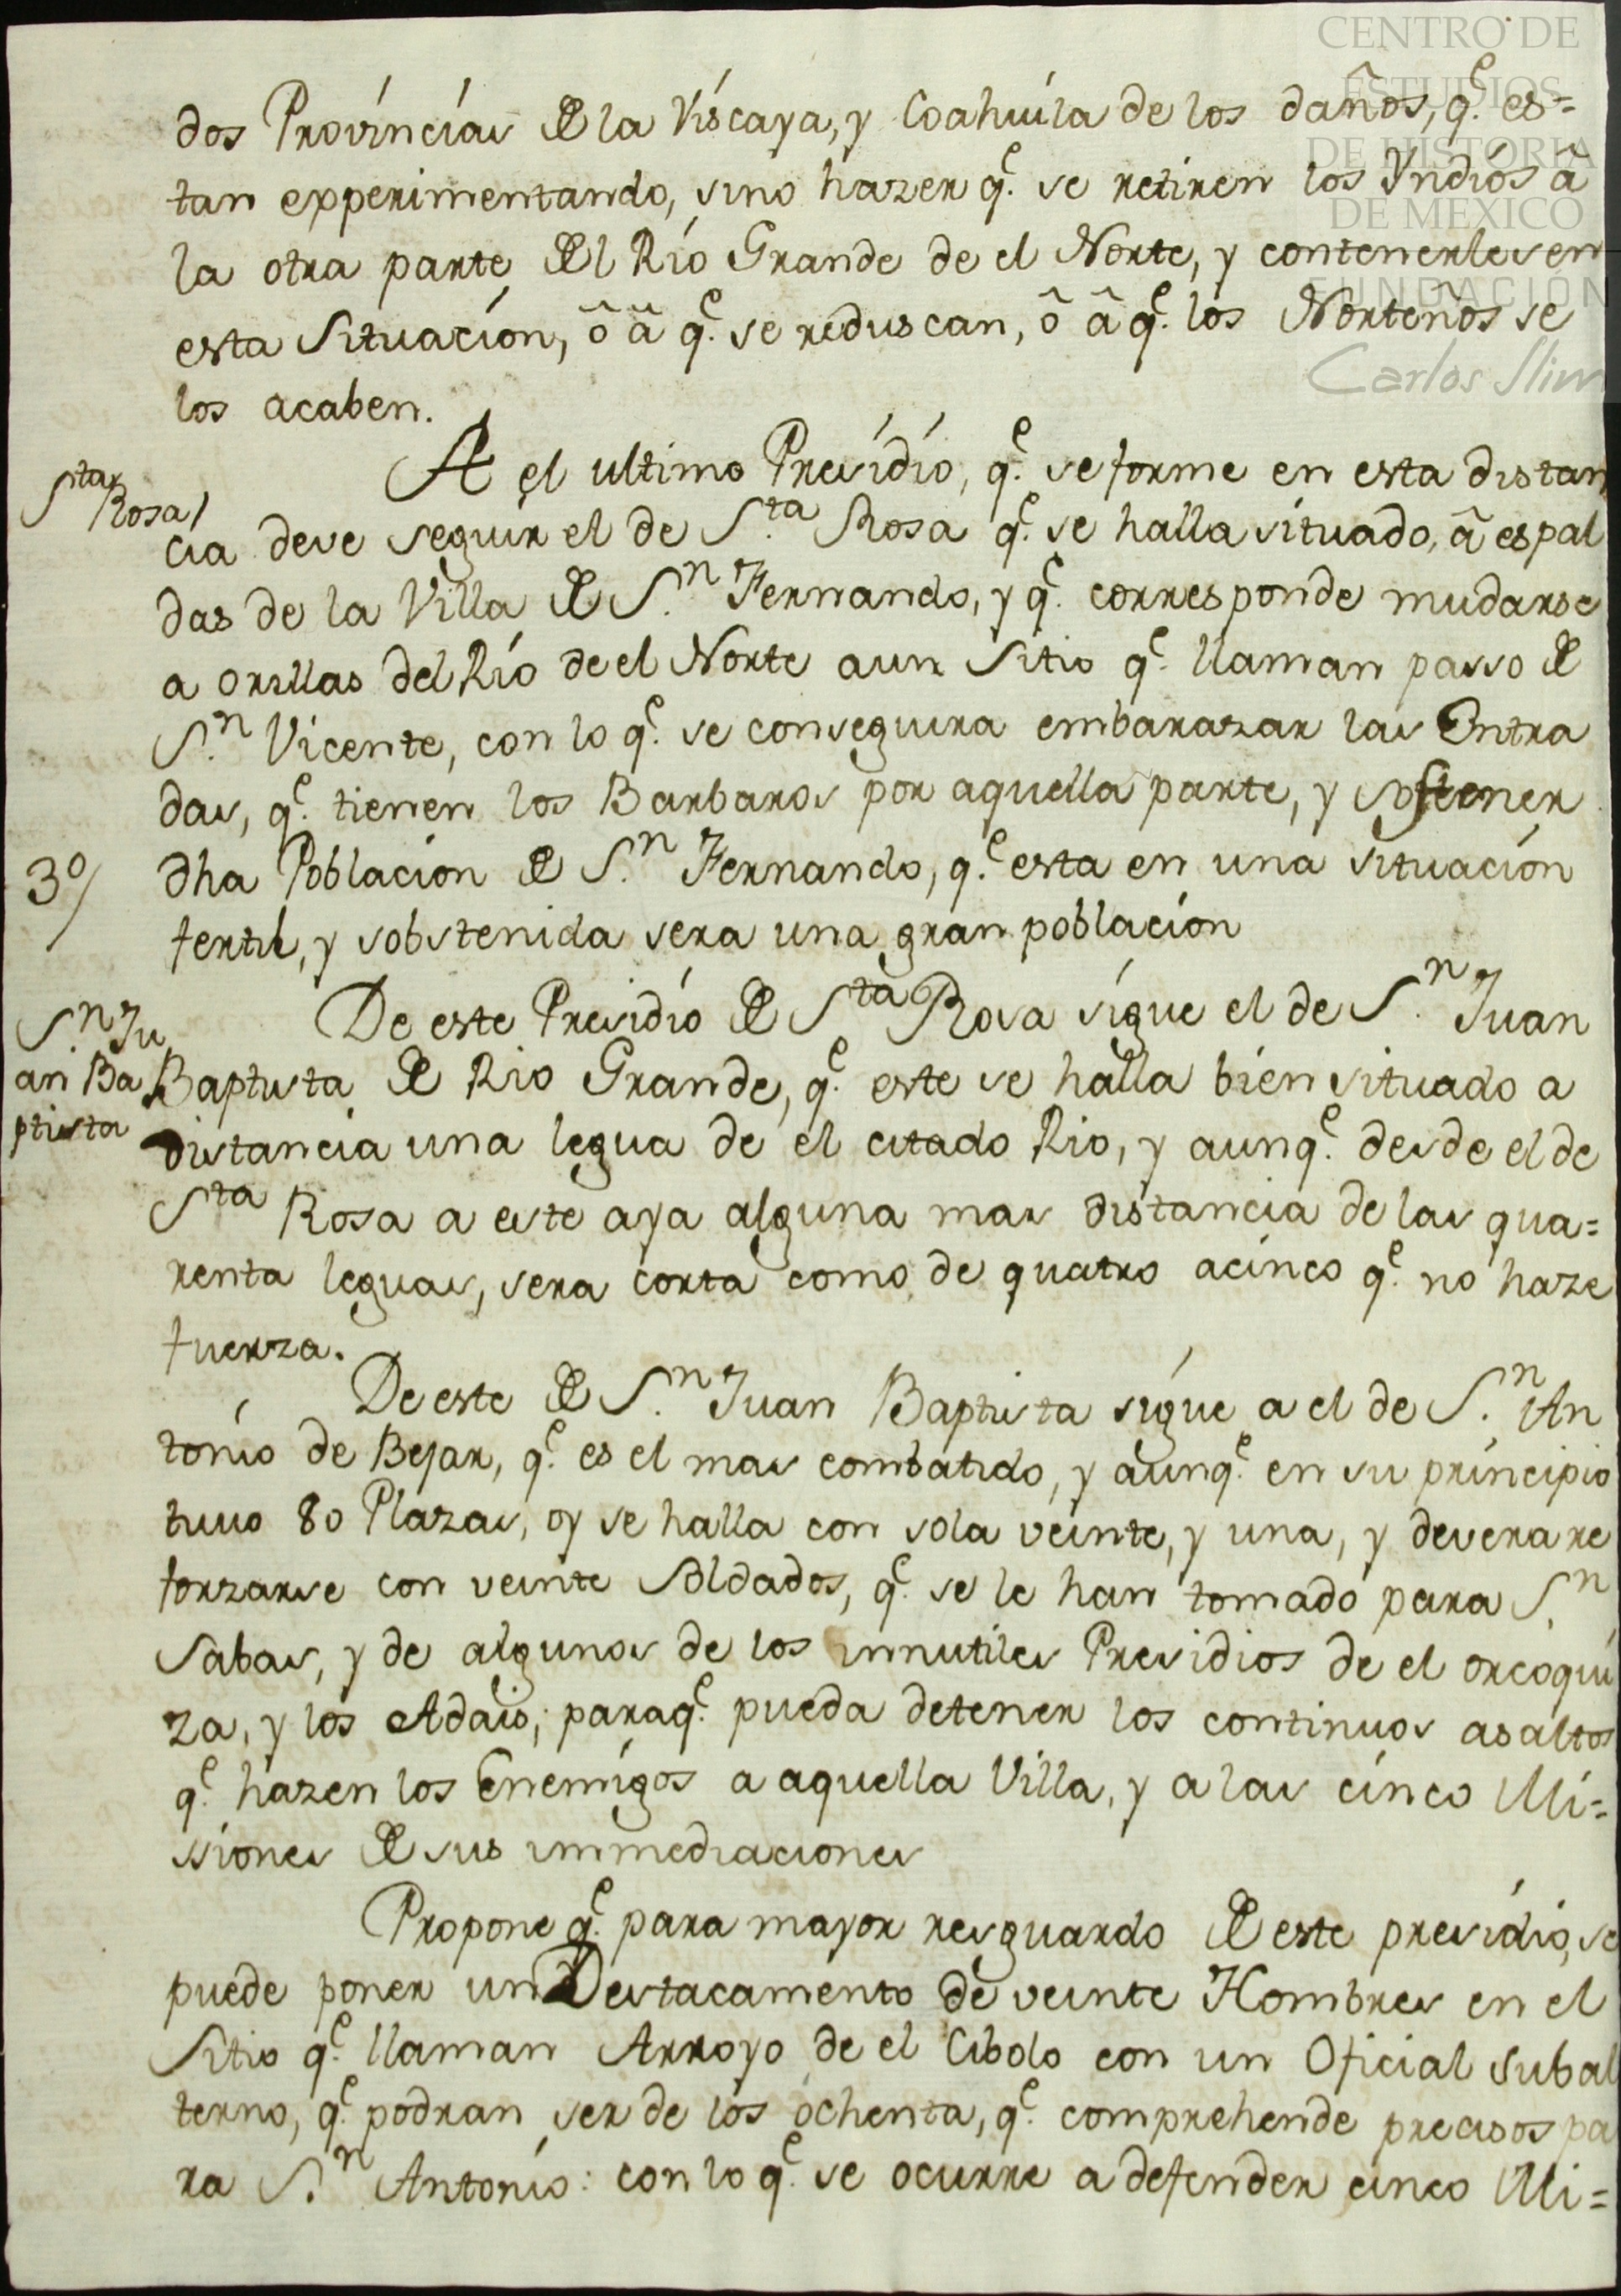 CENTRO DE
ESTUDIOS
DE HISTORIA
DE MEXICO
FUNDACIÓN
Carlos Slim
dos Provincias de la Viscaya, y Coahuila de los daños, q.e es=
tan experimentando, sino hazer q.e se retiren los Yndios â
la otra parte del Rio Grande de el Norte, y contenerles en
esta Situacion, ô â q.e se reduscan, ô â q.e los Norteños se
los acaben.
Sta
Rosa/
A el ultimo Presidio, q.e se forme en esta distan
cia deve seguir el de S.ta Rosa q.e se halla situado, â espal
das de la Villa de S.n Fernando, y q.e corresponde mudarse
a orillas del Rio de el Norte aun Sitio q.e llaman passo de
S.n Vicente, con lo q.e se conseguira embarazar las Entra
das, q.e tienen los Barbaros por aquella parte, y sostener
3º/
dha Poblacion de S.n Fernando, q.e esta en una situacion
fertil, y sobstenida sera una gran poblacion
S.n Ju
an Ba
ptista
De este Presidio de Sta Rosa sigue el de S.n Juan
Baptista de Rio Grande, q.e este se halla bien situado a
distancia una legua de el citado Rio, y aunq.e desde el de
Sta Rosa a este aya alguna mas distancia de las qua=
renta leguas, sera corta como de quatro acinco q.e no haze
fuerza.
De este de S.n Juan Baptista sigue a el de S.n An
tonio de Bejar, q.e es el mas combatido, y aunq.e en su principio
tuvo 80 Plazas, oy se halla con sola veinte, y una, y devera re
forzarse con veinte Soldados, q.e se le han tomado para S.n
Sabas, y de algunos de los innutiles Presidios de el orcoqui
za, y los Adais; paraq.e pueda detener los continuos asaltos
q.e hazen los Enemigos a aquella Villa, y a las cinco Mi=
siones de sus immediaciones
Propone q.e para mayor resguardo de este presidio, se
puede poner un Destacamento de veinte Hombres en el
Sitio q.e llaman Arroyo de el Cibolo con un Oficial subal
terno, q.e podran ser de los ochenta, q.e comprehende precisos pa
ra S.n Antonio: con lo q.e se ocurre a defender cinco Mi=